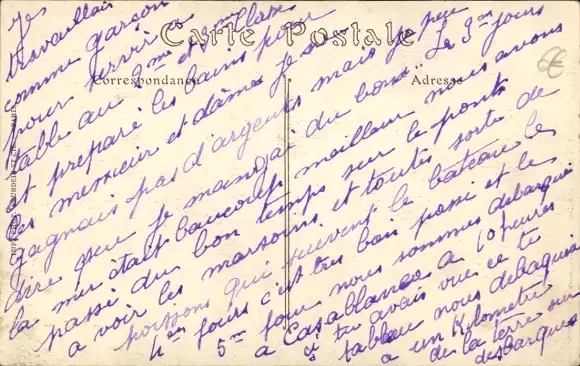 Carte Postale
Correspondance
Adresse
6€
Je
travaillais
comme garçon
pour servir a
table au 2me et 3me classe
et preparé les bains pour
les messieur et dames Je ne
gagnais pas d'argents mais je peu
dire que Je mangai du bon. Le 3em jours
la mer était beaucoup meilleur nous avons
passé du bon temps sur le ponts
a voir les marsouins et toutes sorte de
poissons qui suivent le bateau les
4em jours c'est très bien passé et les
5em jour nous sommes debarqué
a Casablanca a 10 heures
si tu avais vue ce
tableau nous debaquais
a un Kilometre
de la terre sur
des barques